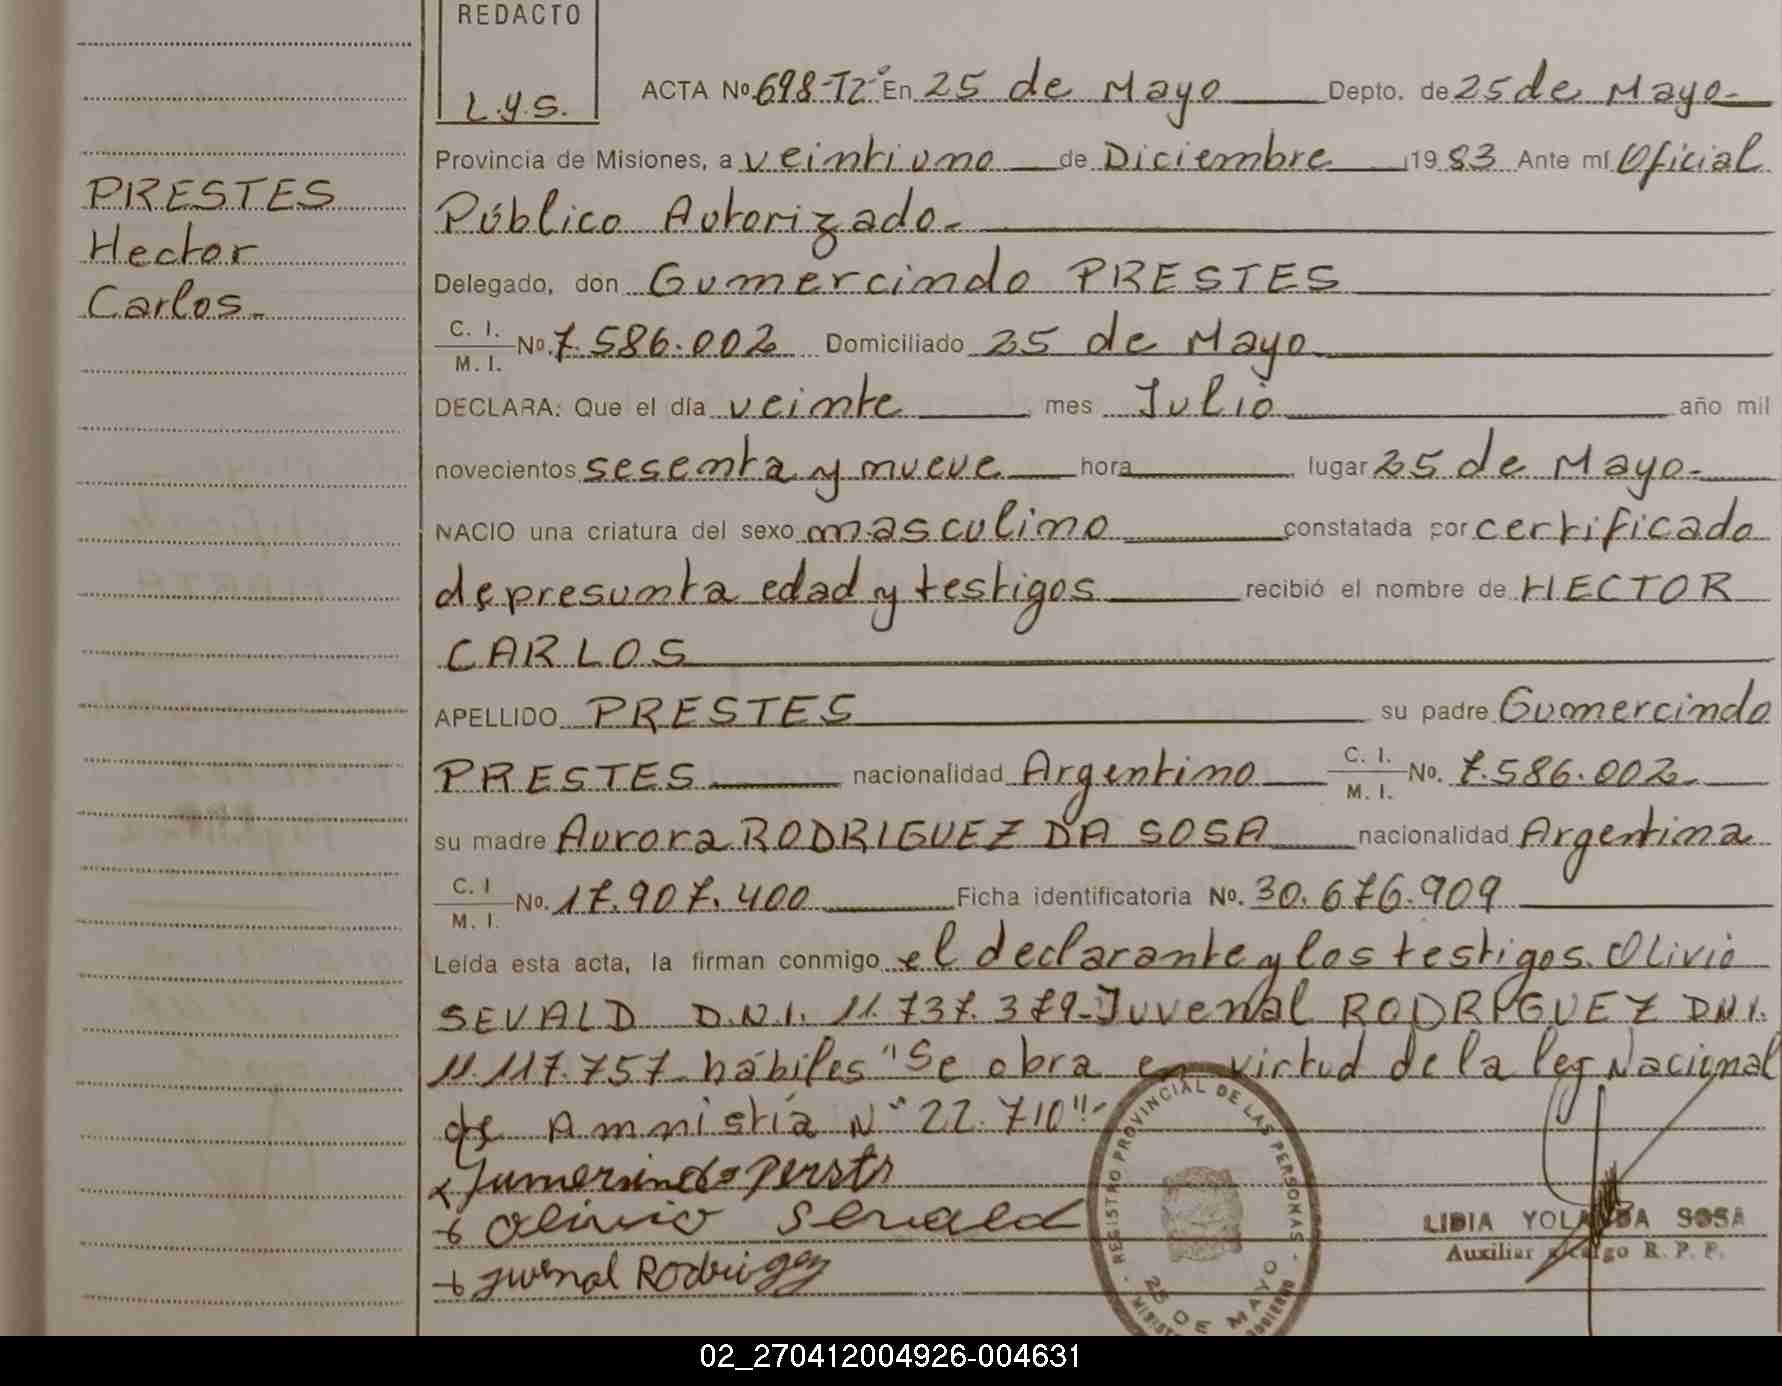 REDACTO
L.y.S.
PRESTES
Hector
Carlos.-
ACTA Nº 698-T2º En 25 de Mayo Depto. de 25 de Mayo.-
Provincia de Misiones, a veintiuno de Diciembre 1983 Ante mí Oficial
Público Autorizado.-
Delegado, don Gumercindo PRESTES
C. I. / M. I. Nº. 7.586.002 Domiciliado 25 de Mayo
DECLARA: Que el día veinte mes Julio año mil
novecientos sesenta y nueve hora lugar 25 de Mayo.-
NACIO una criatura del sexo masculino constatada por certificado
de presunta edad y testigos recibió el nombre de HECTOR
CARLOS
APELLIDO PRESTES su padre Gumercindo
PRESTES nacionalidad Argentino C. I. / M. I. No. 7.586.002
su madre Aurora RODRIGUEZ DA SOSA nacionalidad Argentina
C. I / M. I. No. 17.907.400 Ficha identificatoria No. 30.676.909
Leída esta acta, la firman conmigo el declarante y los testigos. Olivio
SEVALD D.N.I. 11.737.379-Juvenal RODRIGUEZ DNI.
11.117.757 hábiles "Se obra en virtud de la ley Nacional
de Amnistía Nº 22.710".-
Olivio Sevald
Juvenal Rodriguez
REGISTRO PROVINCIAL DE LAS PERSONAS
25 DE MAYO
LIDIA YOLANDA SOSA
Auxiliar R. P. P.
02_270412004926-004631